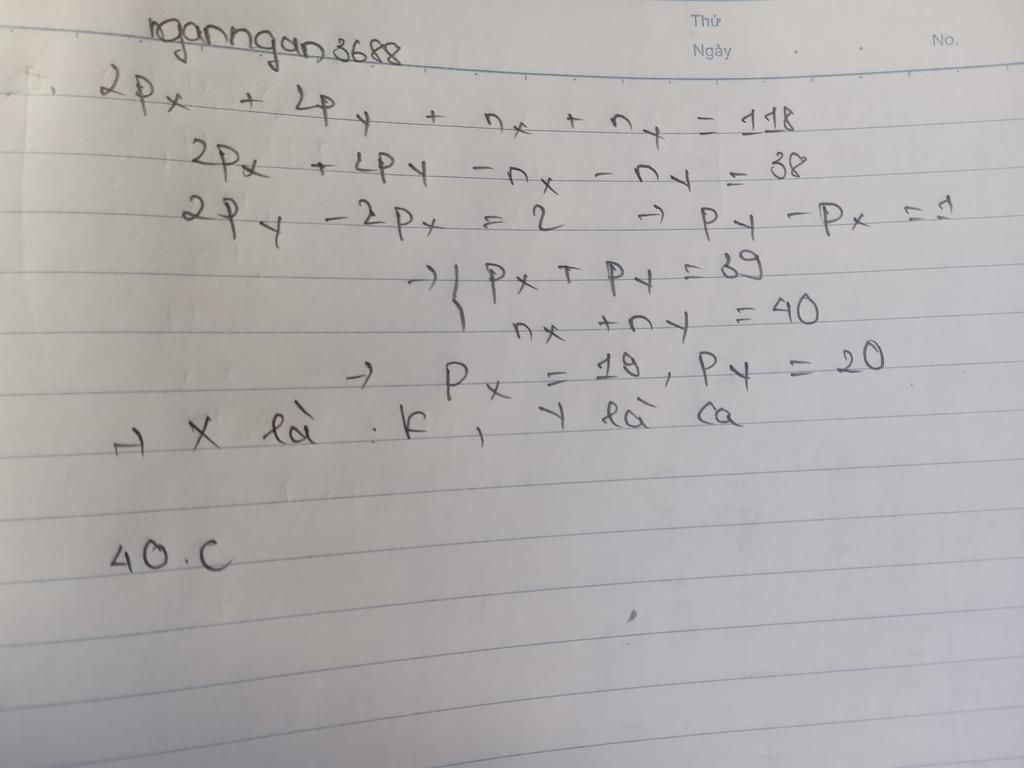 nganngan3688
Thứ
Ngày
No.
2Px + 2Py + nx + ny = 118
2Px + 2Py - nx - ny = 38
2Py - 2Px = 2 → Py - Px = 1
→ { Px + Py = 39
nx + ny = 40
→ Px = 19, Py = 20
→ X là : K, Y là Ca
40.C